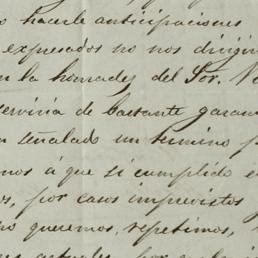 hacerle anticipaciones
expresados no nos dirigim
en la honradez del Sor. V
serviria de bastante garan
señalado un termino p
mos á que si cumplido e
os, por casos imprevistos
no queremos, repetimos,